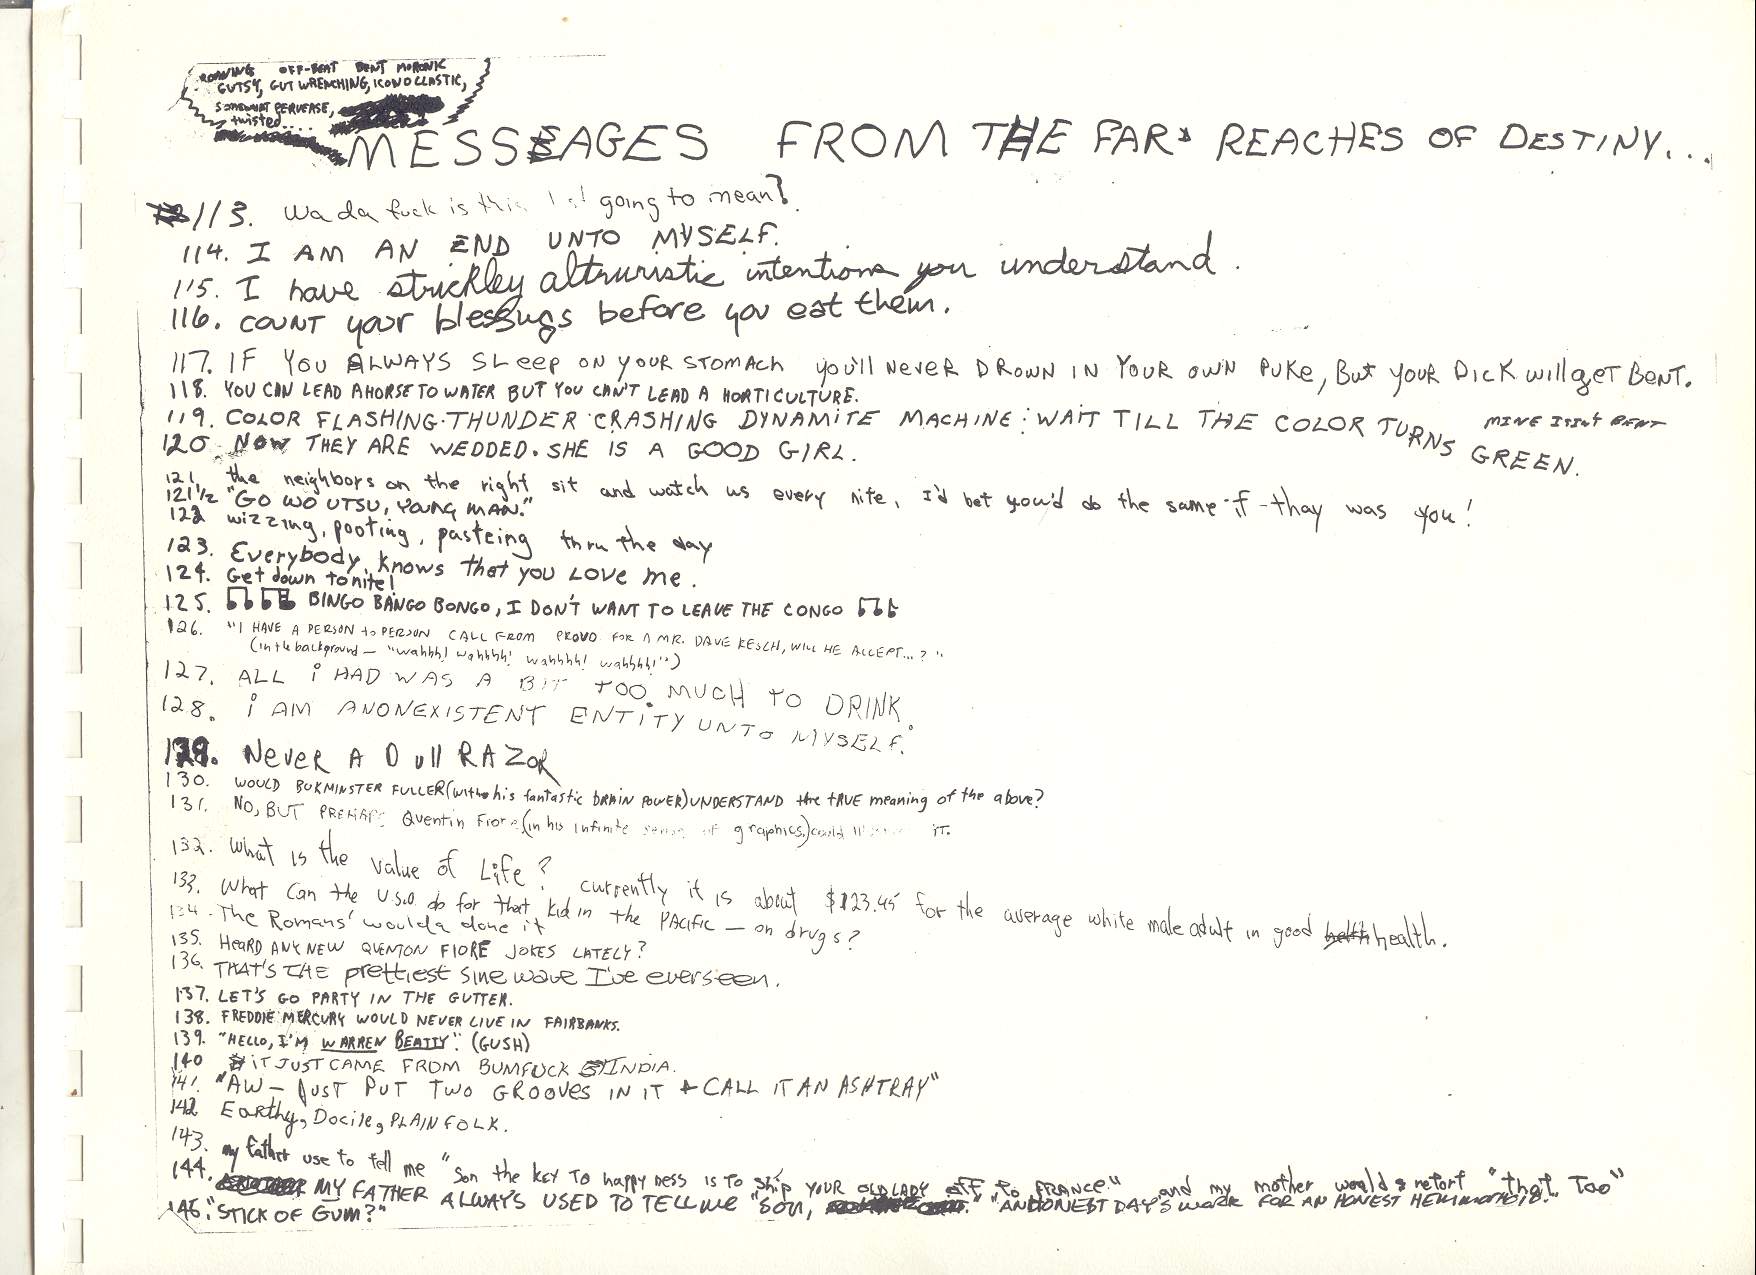 ROAMING OFF-BEAT BENT MORONIC
GUTSY, GUT WRENCHING, ICONOCLASTIC,
SOMEWHAT PERVERSE,
twisted....
MESSAGES FROM THE FAR REACHES OF DESTINY...
113. Wa da fuck is this going to mean?
114. I AM AN END UNTO MYSELF.
115. I have strickley altruristic intentions you understand.
116. COUNT your blessings before you eat them.
117. IF YOU ALWAYS SLeep ON YOUR STOMACH you'll NeveR DROWN IN YOUR OWN PUKE, BuT YOUR DICK will geT BeNT.
118. YOU CAN LEAD A HORSE TO WATER BUT YOU CAN'T LEAD A HORTICULTURE.
MINE ISN'T BENT
119. COLOR FLASHING·THUNDER·CRASHING DYNAMITE MACHINE: WAIT TILL THE COLOR TURNS GREEN.
120. NOW THEY ARE WEDDED. SHE IS A GOOD GIRL.
121. the neighbors on the right sit and watch us every nite, I'd bet you'd do the same if thay was you!
121½ "GO WO UTSU, YOUNG MAN."
122 wizzing, pooting, pasteing thru the day
123. Everybody knows that you LOVE me.
124. Get down tonite!
125. BINGO BANGO BONGO, I DON'T WANT TO LEAVE THE CONGO
126. "I HAVE A PERSON to PERSON CALL FROM PROVO FOR A MR. DAVE KESCH, WILL HE ACCEPT...?"
(in the background — "wahhh! wahhhh! wahhhh! wahhhh!")
127. ALL i HAD WAS A BIT TOO MUCH TO DRINK.
128. i AM A NONEXISTENT ENTiTY UNTO MYSELF.
129. NeveR A DUll RAZoR
130. WOULD BUKMINSTER FULLER (with his fantastic BRAIN POWER) UNDERSTAND the tRUE meaning of the above?
131. NO, BUT PREHAPS Quentin Fiore (in his infinite sense of graphics,) could it.
132. What is the value of Life? currently it is about $123.45 for the average white male adult in good health.
133. What can the U.S.O. do for that kid in the PACific — on drugs?
134. The Romans' woulda done it
135. HeaRD ANY NEW QUENTON FIORE JOKES LATELY?
136. THAT'S THE prettiest sine wave I've ever seen.
137. LET'S GO PARTY IN THE GUTTER.
138. FREDDIE MERCURY WOULD NEVER LIVE IN FAIRBANKS.
139. "HELLO, I'M WARREN BEATTY". (GUSH)
140 IT JUST CAME FROM BUMFUCK INDIA.
141. "AW — JUST PUT TWO GROOVES IN IT + CALL IT AN ASHTRAY"
142 Earthy, Docile, PLAIN FOLK.
143. my father use to tell me "Son the key To happyness is to ship YOUR OLD LADY off to FRANCE." and my mother would retort "that Too"
144. MY FATHER ALWAYS USED TO TELL me "SON, AN HONEST DAY'S WORK FOR AN HONEST
145. "STICK OF GUM?"